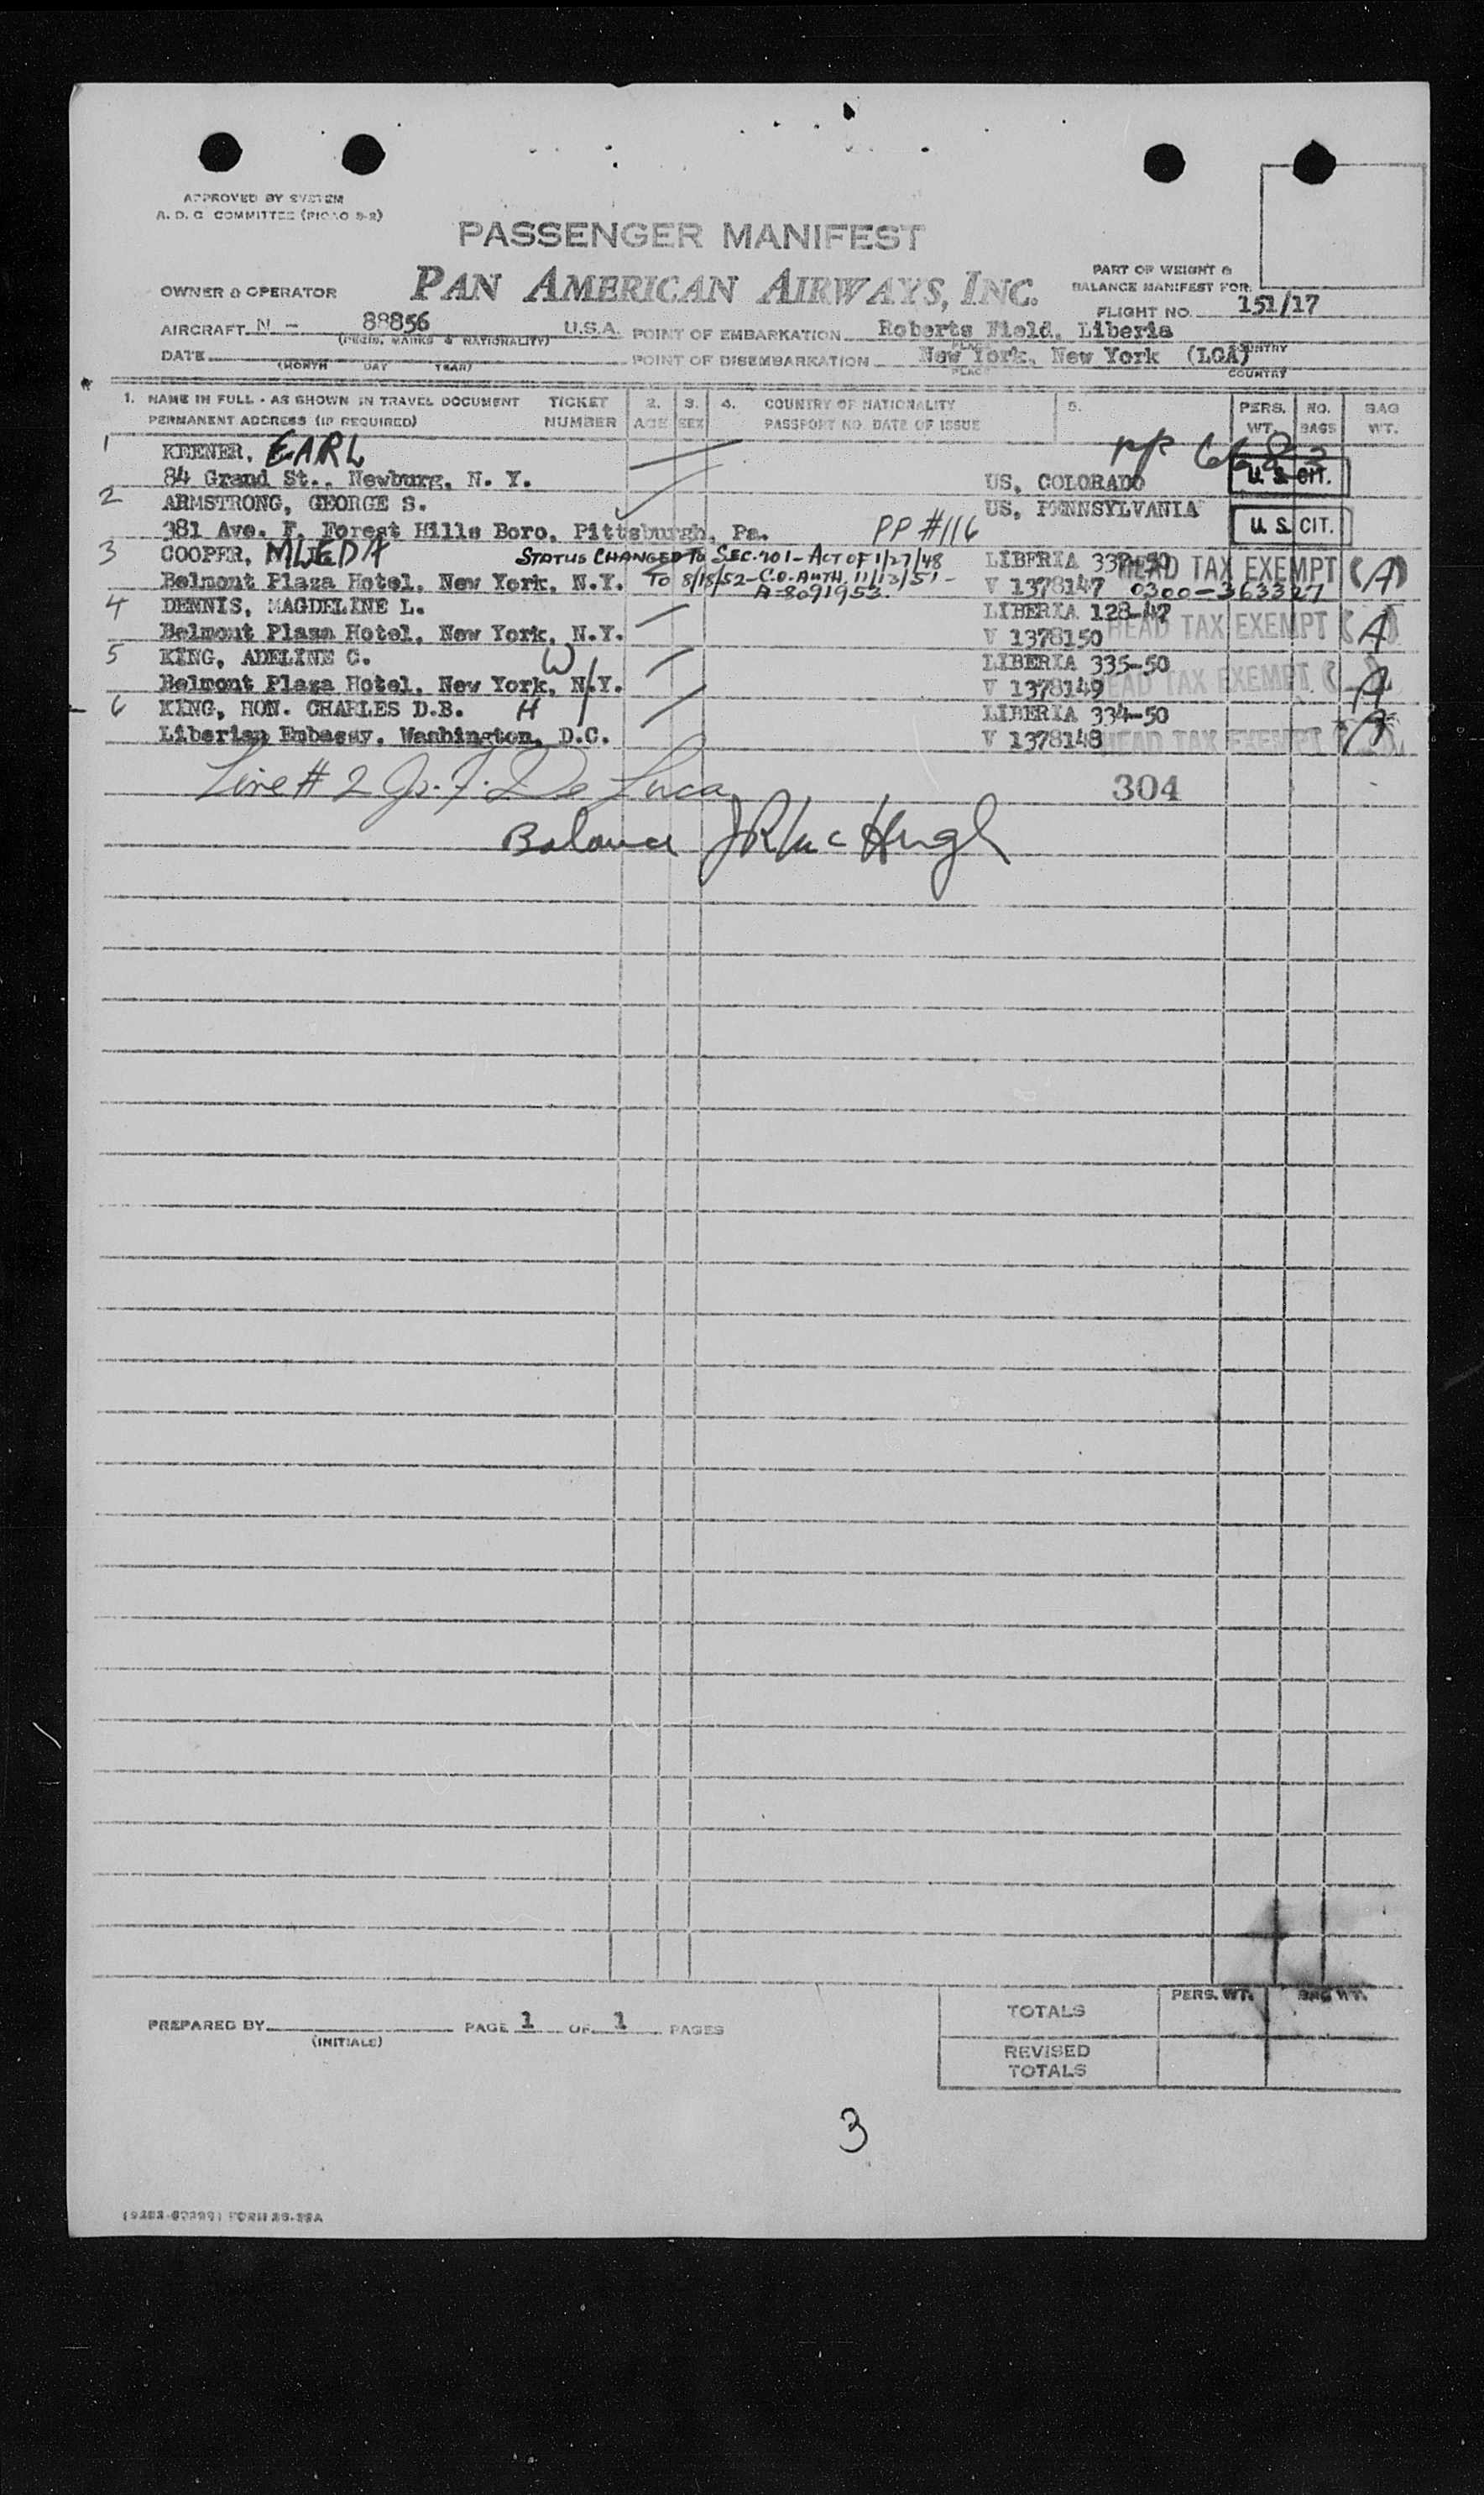 APPROVED BY SYSTEM
A. D. C. COMMITTEE (PICAO 9-2)
PASSENGER MANIFEST
PAN AMERICAN AIRWAYS, INC.
OWNER & OPERATOR
PART OF WEIGHT &
BALANCE MANIFEST FOR
FLIGHT NO. 151/17
AIRCRAFT N - 88856 U.S.A. POINT OF EMBARKATION Roberts Field, Liberia
(REGIS. MARKS & NATIONALITY) PLACE COUNTRY
DATE POINT OF DISEMBARKATION New York, New York (LGA)
(MONTH DAY YEAR) PLACE COUNTRY
1. NAME IN FULL - AS SHOWN IN TRAVEL DOCUMENT TICKET 2. 3. 4. COUNTRY OF NATIONALITY 5. PERS. NO. BAG
PERMANENT ADDRESS (IF REQUIRED) NUMBER AGE SEX PASSPORT NO. DATE OF ISSUE WT. BAGS WT.
1 KEENER, EARL PP
84 Grand St., Newburg, N. Y. US, COLORADO U. S. CIT.
2 ARMSTRONG, GEORGE S. US, PENNSYLVANIA
381 Ave. F. Forest Hills Boro, Pittsburgh, Pa. PP #116 U. S. CIT.
3 COOPER, STATUS CHANGED TO SEC. 201 - ACT OF 1/27/48 LIBERIA HEAD TAX EXEMPT (A)
Belmont Plaza Hotel, New York, N.Y. TO 8/18/52 - C.O. AUTH. 11/13/51 - V 1378147 0300-363327
A-8091953
4 DENNIS, MAGDELINE L. LIBERIA 128-47
Belmont Plaza Hotel, New York, N.Y. V 1378150 HEAD TAX EXEMPT (A)
5 KING, ADELINE C. W LIBERIA 335-50
Belmont Plaza Hotel, New York, N.Y. V 1378149 HEAD TAX EXEMPT (A)
6 KING, HON. CHARLES D.B. H LIBERIA 334-50
Liberian Embassy, Washington, D.C. V 1378148 HEAD TAX EXEMPT (A)
Line # 2 De Luca 304
Balance JR McHugh
PREPARED BY PAGE 1 OF 1 PAGES
(INITIALS)
PERS. WT. BAG WT.
TOTALS
REVISED
TOTALS
3
FORM